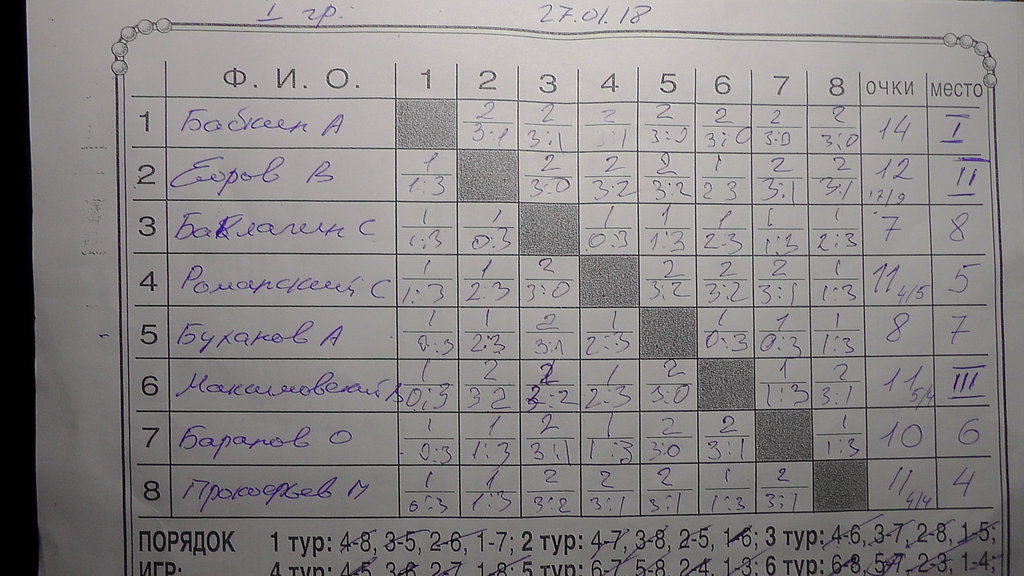 I гр. 27.01.18
Ф. И. О. 1 2 3 4 5 6 7 8 очки место
1 Бабкин А 2 3:1 2 3:1 2 3:1 2 3:0 2 3:0 2 3:0 2 3:0 14 I
2 Егоров В 1 1:3 2 3:0 2 3:2 2 3:2 1 2 3 2 3:1 2 3:1 12 II
3 Баклагин С 1 1:3 1 0:3 1 0:3 1 1:3 1 2:3 1 1:3 1 2:3 7 8
4 Романский С 1 1:3 1 2:3 2 3:0 2 3:2 2 3:2 2 3:1 1 1:3 11 4/5 5
5 Буханов А 1 0:3 1 2:3 2 3:1 1 2:3 1 0:3 1 0:3 1 1:3 8 7
6 Максимовский В 1 0:3 2 3 2 2 3:2 1 2:3 2 3:0 1 1:3 2 3:1 11 5/4 III
7 Баранов О 1 0:3 1 1:3 2 3:1 1 1:3 2 3:0 2 3:1 1 1:3 10 6
8 Прокофьев М 1 0:3 1 1:3 2 3:2 2 3:1 2 3:1 1 1:3 2 3:1 11 4/4 4
ПОРЯДОК 1 тур: 4-8, 3-5, 2-6, 1-7; 2 тур: 4-7, 3-8, 2-5, 1-6; 3 тур: 4-6, 3-7, 2-8, 1-5;
ИГР: 4 тур: 4-5, 3-6, 2-7, 1-8; 5 тур: 6-7, 5-8, 2-4, 1-3; 6 тур: 6-8, 5-7, 2-3, 1-4;